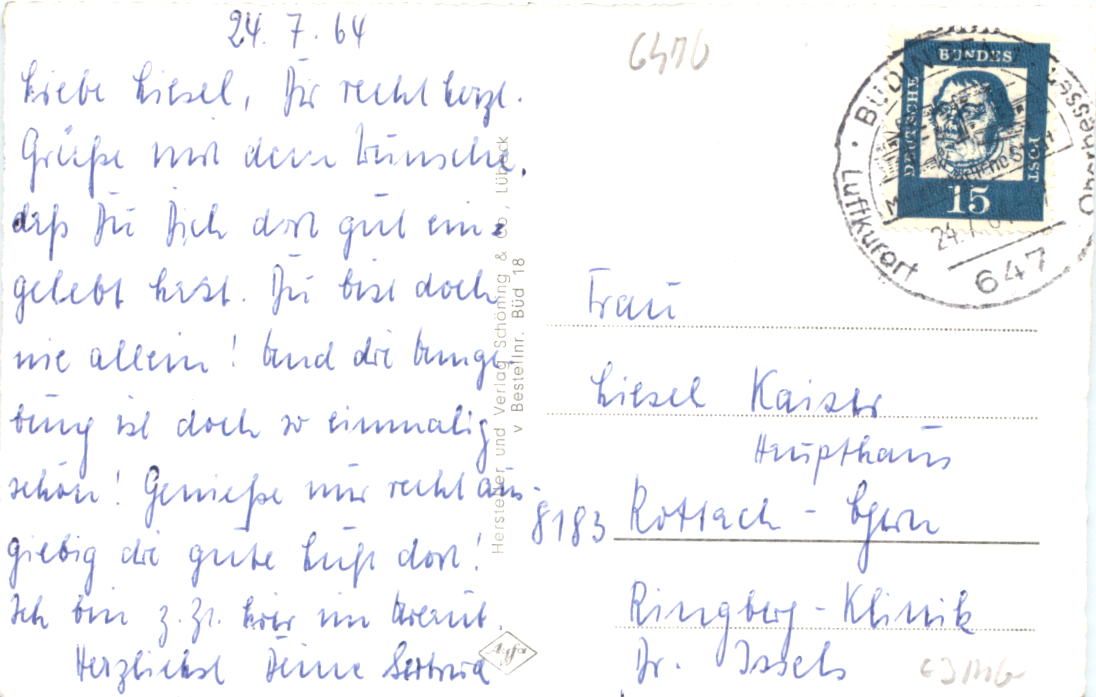 24. 7. 64
Liebe Liesel, Dir recht herzl.
Grüße mit dem Wunsche,
daß Du Dich dort gut ein-
gelebt hast. Du bist doch
nie allein! Und die Umge-
bung ist doch so einmalig
schön! Genieße nur recht aus-
giebig die gute Luft dort!
Ich bin z. Zt. hier im
Herzlichst Deine
Hersteller und Verlag Schöning & Co., Lübeck
v Bestellnr. Büd 18
DEUTSCHE BUNDES POST
15
Luftkurort
Oberhessen
24.7.
647
Frau
Liesel Kaiser
Haupthaus
8183 Rottach - Egern
Ringberg - Klinik
Dr. Issels